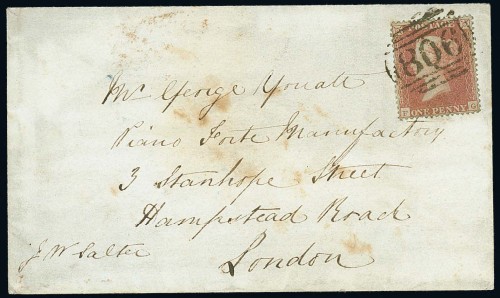 POSTAGE
806
ONE PENNY
Mr George Youatt
Piano Forte Manufactory
3 Stanhope Street
Hampstead Road
London
J W Salter